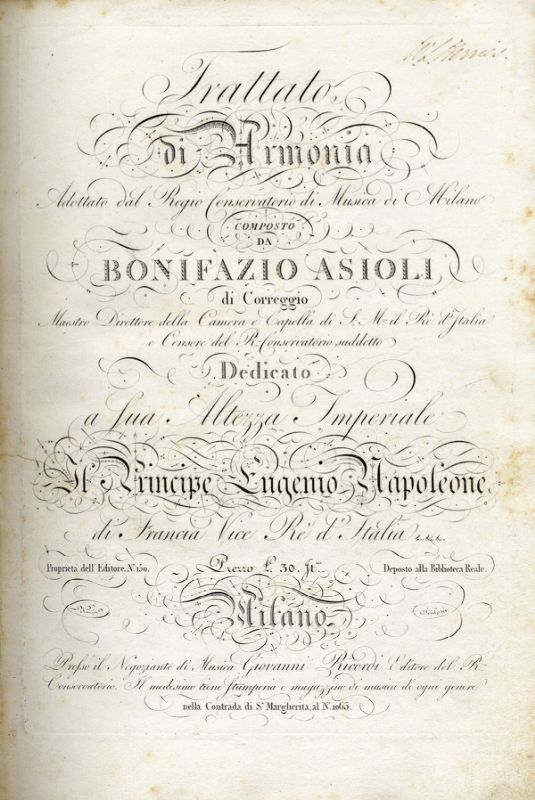 Trattato
di Armonia
Adottato dal Regio Conservatorio di Musica di Milano
COMPOSTO
DA
BONIFAZIO ASIOLI
di Correggio
Maestro Direttore della Camera e Capella di S. M. il Rè d'Italia
e Censore del R. Conservatorio suddetto
Dedicato
a Sua Altezza Imperiale
Il Principe Eugenio Napoleone
di Francia Vice Rè d'Italia
Proprietà dell'Editore. N. 150.
Prezzo L. 30.
Deposto alla Biblioteca Reale.
Milano
Presso il Negoziante di Musica Giovanni Ricordi Editore del R.
Conservatorio. Il medesimo tiene Stamperia e magazzino di musica di ogni genere
nella Contrada di S. Margherita, al N. 1065.